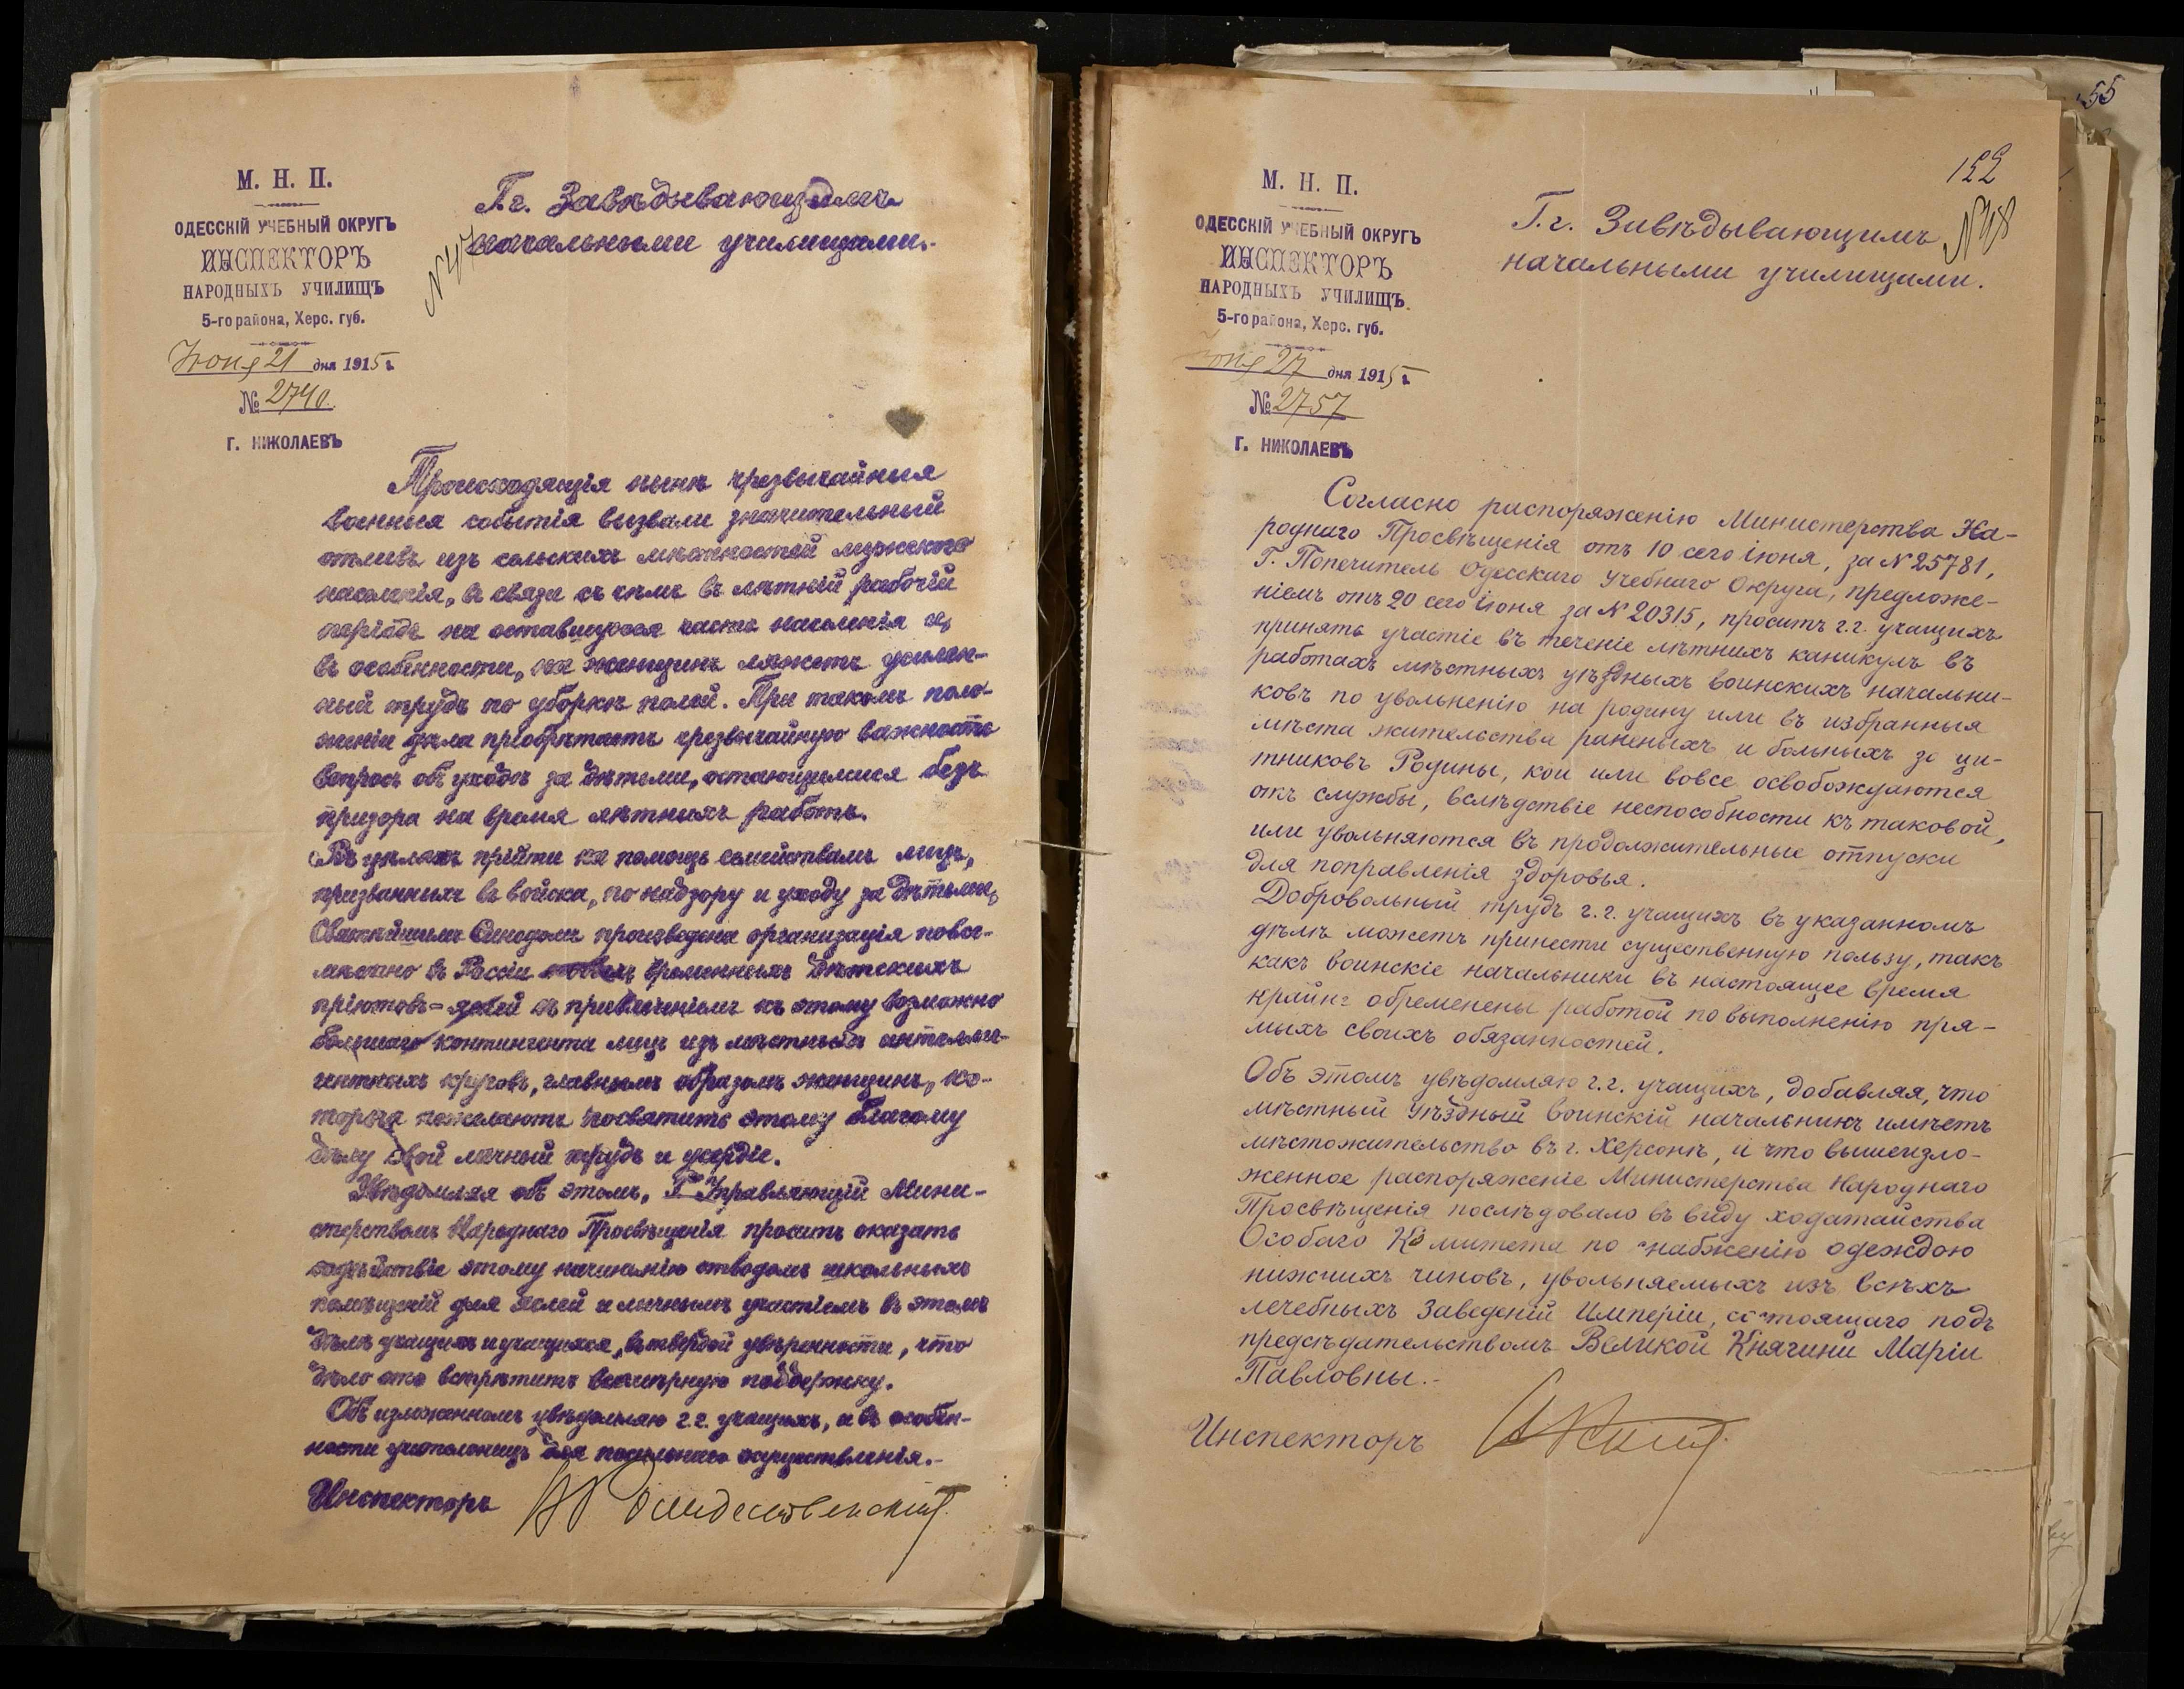 М. Н. П.
ОДЕССКІЙ УЧЕБНЫЙ ОКРУГЪ
ИНСПЕКТОРЪ
НАРОДНЫХЪ УЧИЛИЩЪ
5-го района, Херс. губ.
Іюня 21 дня 1915 г.
№ 2740.
Г. НИКОЛАЕВЪ
Г.г. Завѣдывающимъ
начальными училищами.-
N 47
Происходящія нынѣ чрезвычайныя
военныя событія вызвали значительный
отливъ изъ сельскихъ мѣстностей мужского
населенія, въ связи съ чѣмъ въ лѣтній рабочій
періодъ на оставшуюся часть населенія и,
въ особенности, на женщинъ ляжетъ усилен-
ный трудъ по уборкѣ полей. При такомъ поло-
женіи дѣла пріобрѣтаетъ чрезвычайную важность
вопросъ объ уходѣ за дѣтьми, остающимися безъ
призора на время лѣтнихъ работъ.
Въ цѣляхъ прійти на помощь семействамъ лицъ,
призванныхъ въ войска, по надзору и уходу за дѣтьми,
Святѣйшимъ Синодомъ произведена организація повсе-
мѣстно въ Россіи временныхъ дѣтскихъ
пріютовъ-яслей съ привлеченіемъ къ этому возможно
большаго контингента лицъ изъ мѣстныхъ интелли-
гентныхъ круговъ, главнымъ образомъ женщинъ, ко-
торыя пожелаютъ посвятить этому благому
дѣлу свой личный трудъ и усердіе.
Увѣдомляя объ этомъ, Г. Управляющій Мини-
стерствомъ Народнаго Просвѣщенія проситъ оказать
содѣйствіе этому начинанію отводомъ школьныхъ
помѣщеній для яслей и личнымъ участіемъ въ этомъ
дѣлѣ учащихъ и учащихся, въ твердой увѣренности, что
дѣло это встрѣтитъ всемѣрную поддержку.
Объ изложенномъ увѣдомляю г.г. учащихъ, а въ особен-
ности учительницъ для посильнаго осуществленія.-
Инспекторъ
55
122
N 48
М. Н. П.
ОДЕССКІЙ УЧЕБНЫЙ ОКРУГЪ
ИНСПЕКТОРЪ
НАРОДНЫХЪ УЧИЛИЩЪ
5-го района, Херс. губ.
Іюня 27 дня 1915 г.
№ 2757
Г. НИКОЛАЕВЪ
Г.г. Завѣдывающимъ
начальными училищами.
Согласно распоряженію Министерства На-
роднаго Просвѣщенія отъ 10 сего іюня, за N 25781,
Г. Попечитель Одесскаго Учебнаго Округа, предложе-
ніемъ отъ 20 сего іюня за N 20315, проситъ г.г. учащихъ
принять участіе въ теченіе лѣтнихъ каникулъ въ
работахъ мѣстныхъ уѣздныхъ воинскихъ начальни-
ковъ по увольненію на родину или въ избранныя
мѣста жительства раненыхъ и больныхъ защи-
тниковъ Родины, кои или вовсе освобождаются
отъ службы, вслѣдствіе неспособности къ таковой,
или увольняются въ продолжительные отпуски
для поправленія здоровья.
Добровольный трудъ г.г. учащихъ въ указанномъ
дѣлѣ можетъ принести существенную пользу, такъ
какъ воинскіе начальники въ настоящее время
крайне обременены работой по выполненію пря-
мыхъ своихъ обязанностей.
Объ этомъ увѣдомляю г.г. учащихъ, добавляя, что
мѣстный уѣздный воинскій начальникъ имѣетъ
мѣстожительство въ г. Херсонѣ, и что вышеизло-
женное распоряженіе Министерства Народнаго
Просвѣщенія послѣдовало въ виду ходатайства
Особаго Комитета по снабженію одеждою
нижнихъ чиновъ, увольняемыхъ изъ всѣхъ
лечебныхъ заведеній Имперіи, состоящаго подъ
предсѣдательствомъ Великой Княгини Маріи
Павловны.-
Инспекторъ